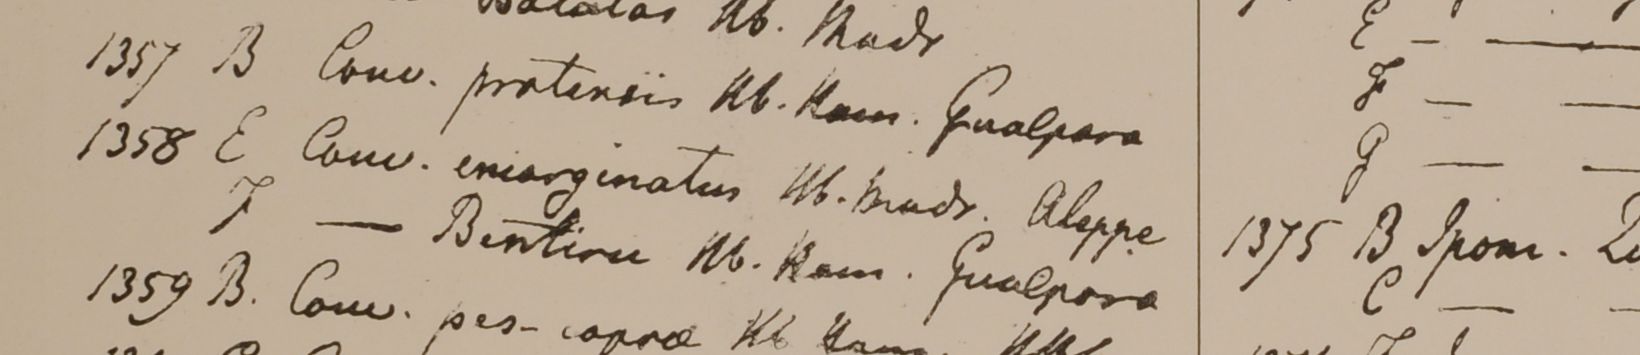 Batatas Hb. Madr
1357 B Conv. pratensis Hb. Ham. Gualpara
1358 E Conv. emarginatus Hb. Madr. Aleppe
F — Hb. Ham. Gualpara
1359 B. Conv. pes-caprae Hb Ham.
E —
F —
G —
1375 B Ipom.
C —